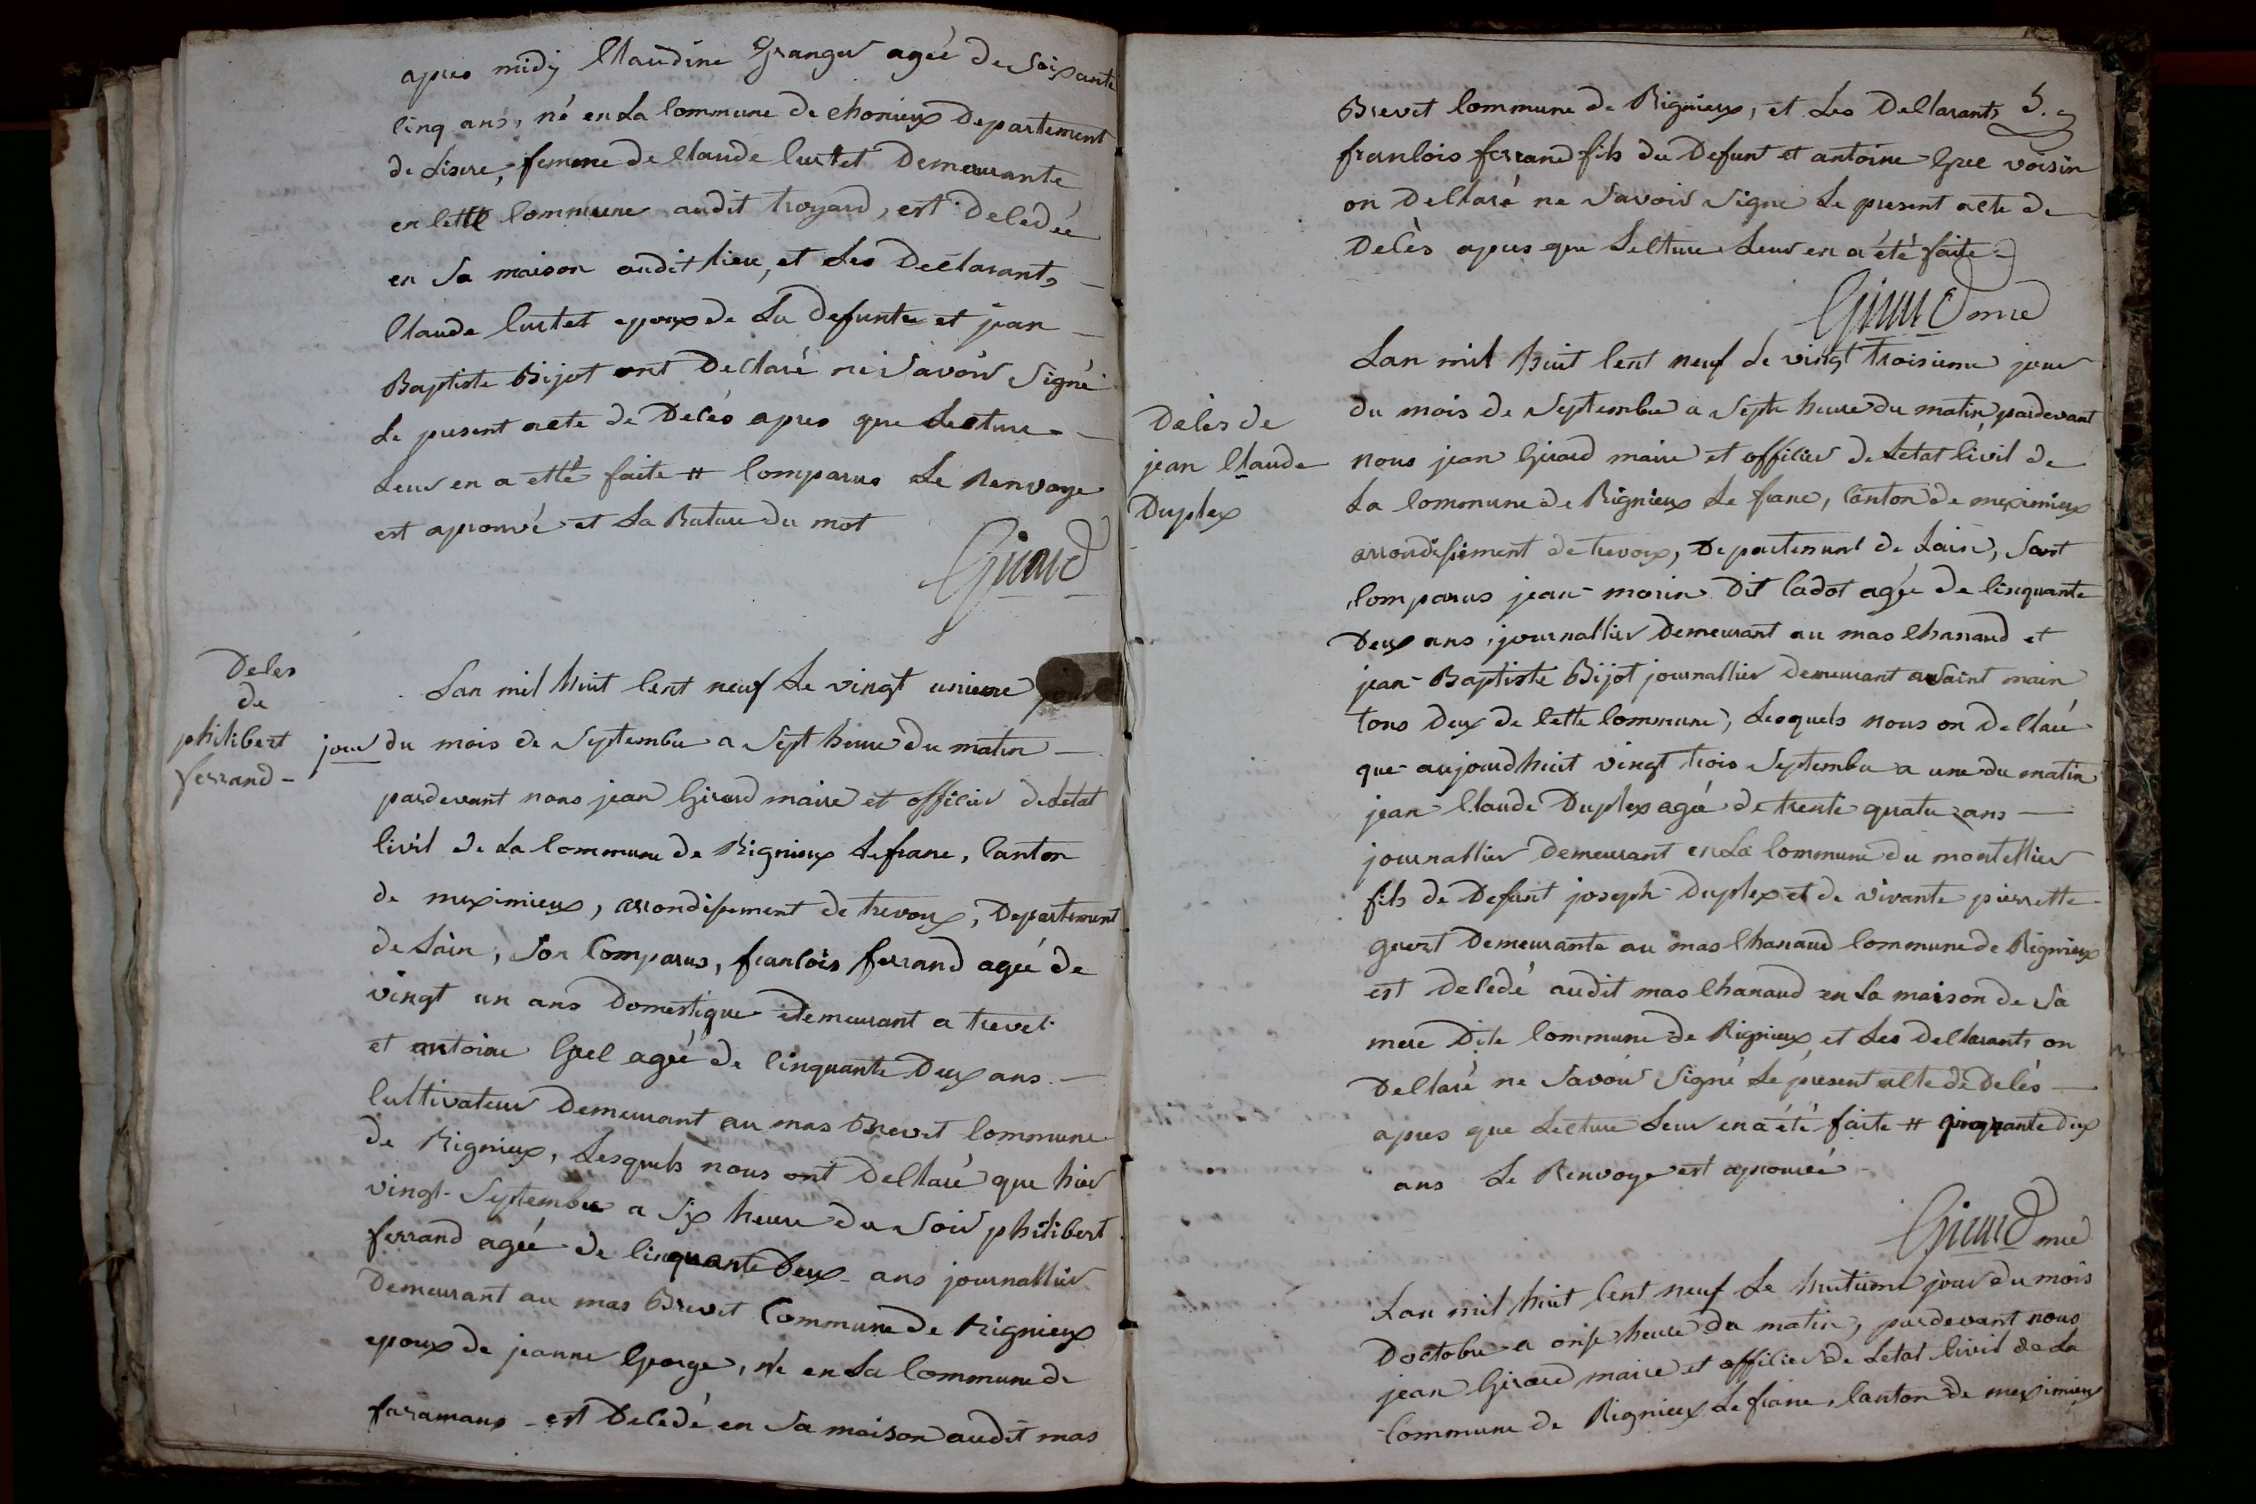 apres midy Claudine Granger agée de soixante
cinq ans, né en la Commune de chonieux Departement
de Lisere, femme de Claude Curtet Demeurante
en cette Commune audit troyard, est decédée
en sa maison audit lieu, et Les Déclarants
Claude Curtet epoux de La Defunte et jean
Baptiste Bijot ont Declaré ne savoir signé
Le present acte de Decés apres que Lecture
Leur en a etté faite # Comparus Le Renvoye
est aprouvé et La Rature du mot
Girard
Deces
de
philibert
ferrand
Lan mil huit Cent neuf Le vingt unieme
jour du mois de Septembre a Sept heure du matin
pardevant nous jean Girard maire et officier de Letat
Civil de La Commune de Rignieux Lefranc, Canton
de meximieux, arrondissement de trevoux, Departement
de Lain, Son Comparus, francois ferrand agée de
vingt un ans Domestique Demeurant a trevet
et antoine Grel agée de Cinquante Deux ans
Cultivateur Demeurant au mas Brevet Commune
de Rignieux, Lesquels nous ont Declaré que hier
vingt Septembre a Six heure du Soir philibert
ferrand agée de Cinquante Deux ans journallier
Demeurant au mas Brevet Commune de Rignieux
epoux de jeanne George, né en La Commune de
faramans est Decedé en sa maison audit mas
Brevet Commune de Rignieux, et Les Declarants 5.
francois ferrand fils du Defunt et antoine Grel voisin
on Declaré ne Savoir Signé Le present acte de
Decès apres que Lecture Leur en a été faite
Girard mre
Decès de
jean Claude
Duplex
Lan mil huit Cent neuf Le vingt troisieme jour
du mois de Septembre a Septe heure du matin, pardevant
nous jean Girard maire et officier de Letat Civil de
La Commune de Rignieux Le franc, Canton de meximieux
arrondissement de trevoux, Departement de Lain, Sont
Comparus jean morin Dit Cadot agée de Cinquante
Deux ans, journallier Demeurant au mas Chanaud et
jean Baptiste Bijot journallier demeurant a Saint main
tous Deux de Cette Commune, Lesquels nous on Declaré
que aujourdhuit vingt trois Septembre a une du matin
jean Claude Duplex agée de trente quatre ans
journallier Demeurant en La Commune du montellier
fils de Defunt joseph Duplex et de vivante pierrette
guert Demeurante au mas Chanaud Commune de Rignieux
est Decedé audit mas Chanaud en La maison de Sa
mere Dite Commune de Rignieux, et Les Declarants on
Declaré ne Savoir Signé Le present acte de Decés
apres que Lecture Leur en a été faite # Cinquante deux
ans Le Renvoye est aprouvée
Girard mre
Lan mil huit Cent neuf Le huitieme jour du mois
Doctobre a onse heure du matin, pardevant nous
jean Girard maire et officier de Letat Civil de La
Commune de Rignieux Le franc, Canton de meximieux